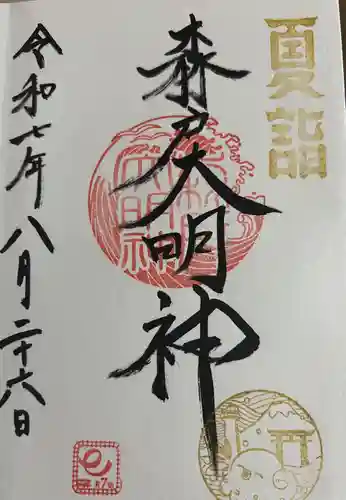 夏詣
森戸大明神
令和七年八月二十六日